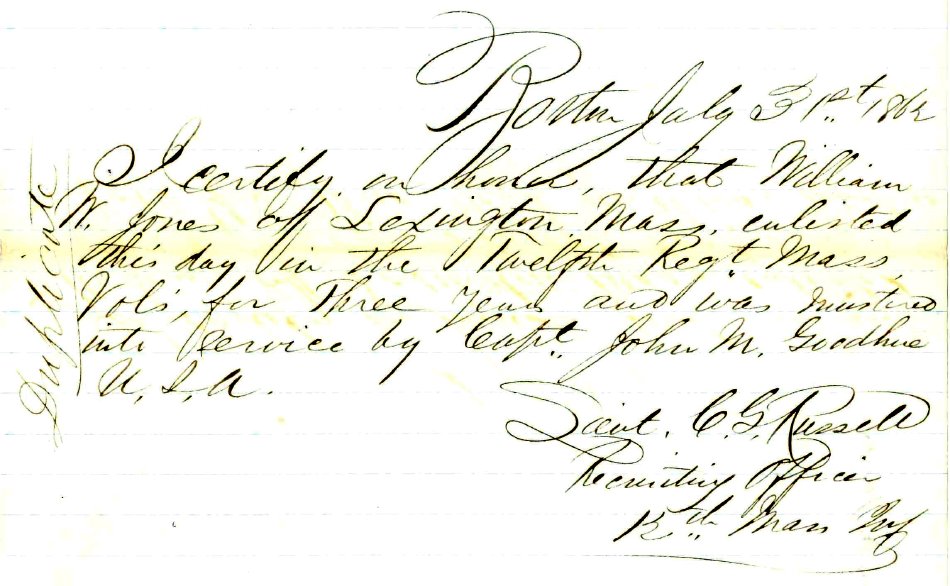 Boston July 31st 1862
I certify, on honor, that William
W. Jones of Lexington, Mass, enlisted
this day in the Twelfth Regt. Mass,
Vols, for Three Years and was mustered
into service by Capt. John M. Goodhue
U.S.A.
Lieut. C. G. Russell
Recruiting Officer
12th Mass Inf
Duplicate